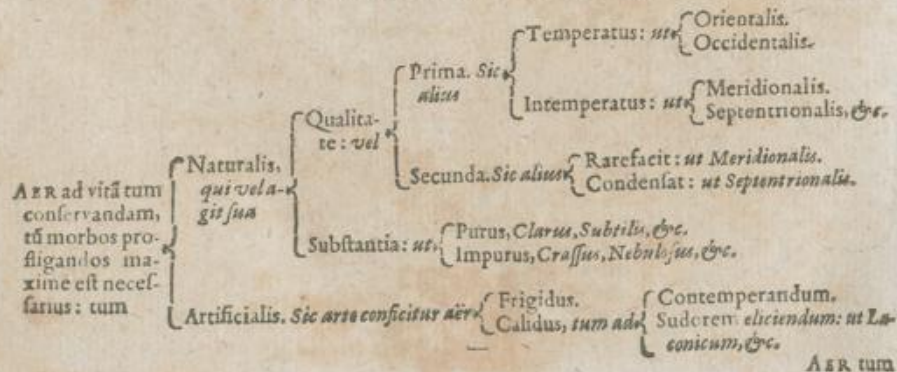 AER ad vitā tum
conservandam,
tū morbos pro-
fligandos ma-
xime est neces-
sarius: tum
Naturalis,
qui vel a-
git sua
Qualita-
te: vel
Prima. Sic
alius
Temperatus: ut
Orientalis.
Occidentalis.
Intemperatus: ut
Meridionalis.
Septentrionalis, &c.
Secunda. Sic alius
Rarefacit: ut Meridionalis.
Condensat: ut Septentrionalis.
Substantia: ut
Purus, Clarus, Subtilis, &c.
Impurus, Crassus, Nebulosus, &c.
Artificialis. Sic arte conficitur aër
Frigidus.
Calidus, tum ad
Contemperandum.
Sudorem eliciendum: ut La-
conicum, &c.
AER tum